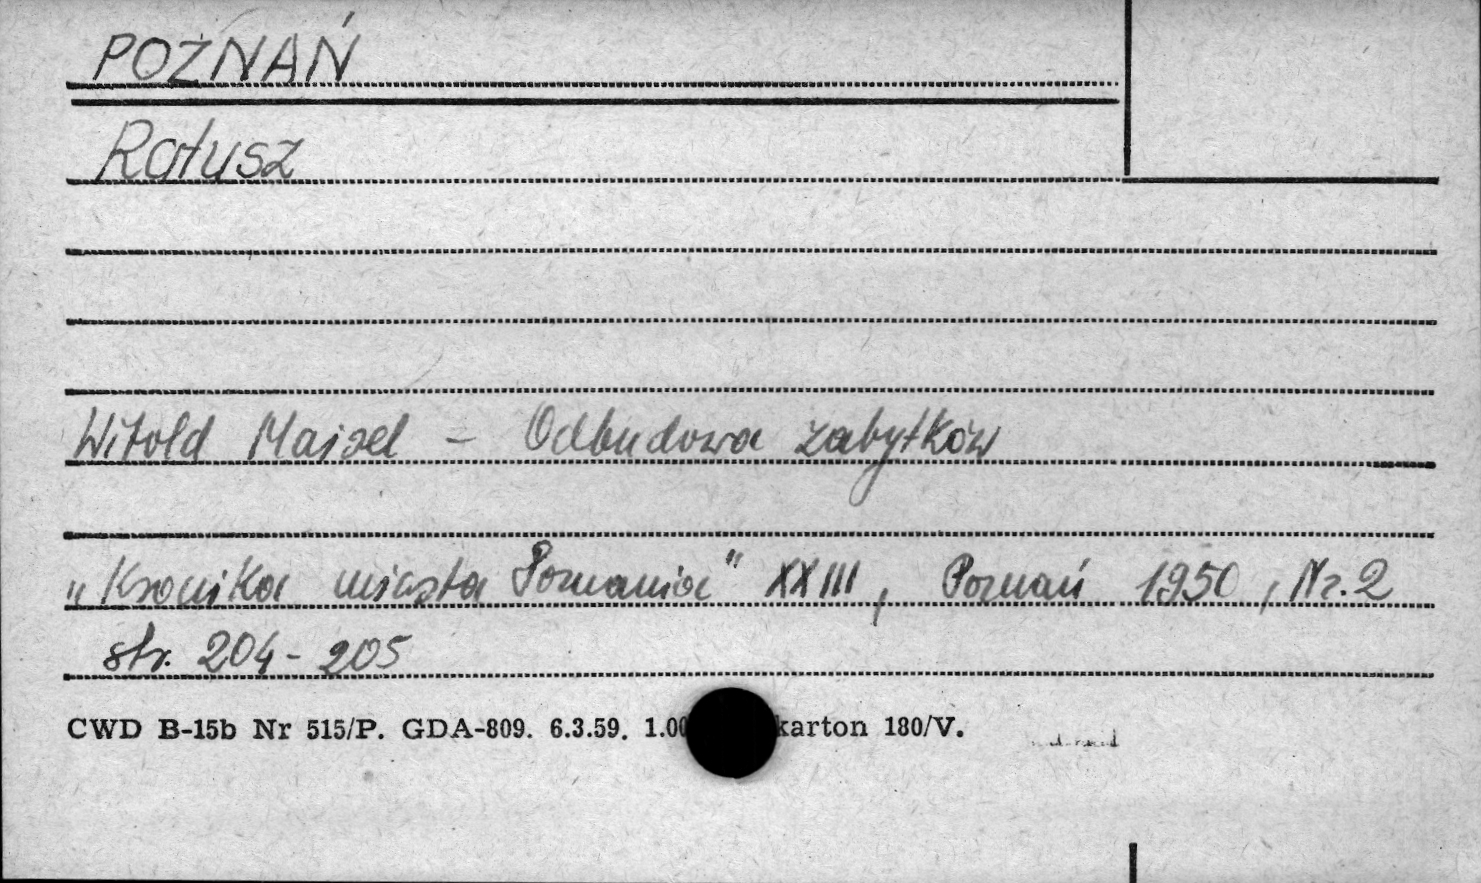 POZNAŃ
Ratusz
Witold Maisel - Odbudowa zabytków
„Kronika miasta Poznania" XXIII, Poznań 1950, Nr. 2
str. 204-205
CWD B-15b Nr 515/P. GDA-809. 6.3.59. 1.00 karton 180/V.